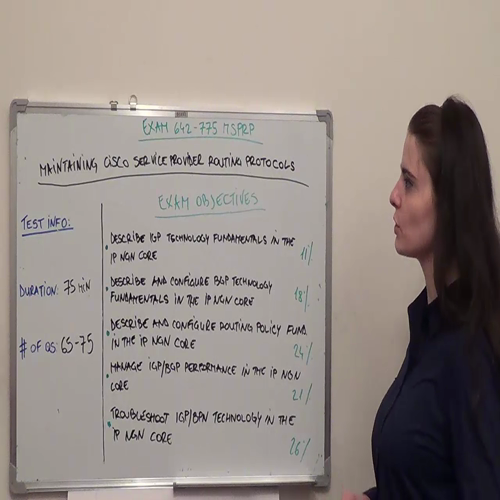 EXAM 642-775 MSPRP
MAINTAINING CISCO SERVICE PROVIDER ROUTING PROTOCOLS
EXAM OBJECTIVES
TEST INFO:
DURATION: 75 MIN
# OF QS: 65-75
DESCRIBE IGP TECHNOLOGY FUNDAMENTALS IN THE
IP NGN CORE 11%
DESCRIBE AND CONFIGURE BGP TECHNOLOGY
FUNDAMENTALS IN THE IP NGN CORE 18%
DESCRIBE AND CONFIGURE ROUTING POLICY FUND.
IN THE IP NGN CORE 24%
MANAGE IGP/BGP PERFORMANCE IN THE IP NGN
CORE 21%
TROUBLESHOOT IGP/BPN TECHNOLOGY IN THE
IP NGN CORE 26%